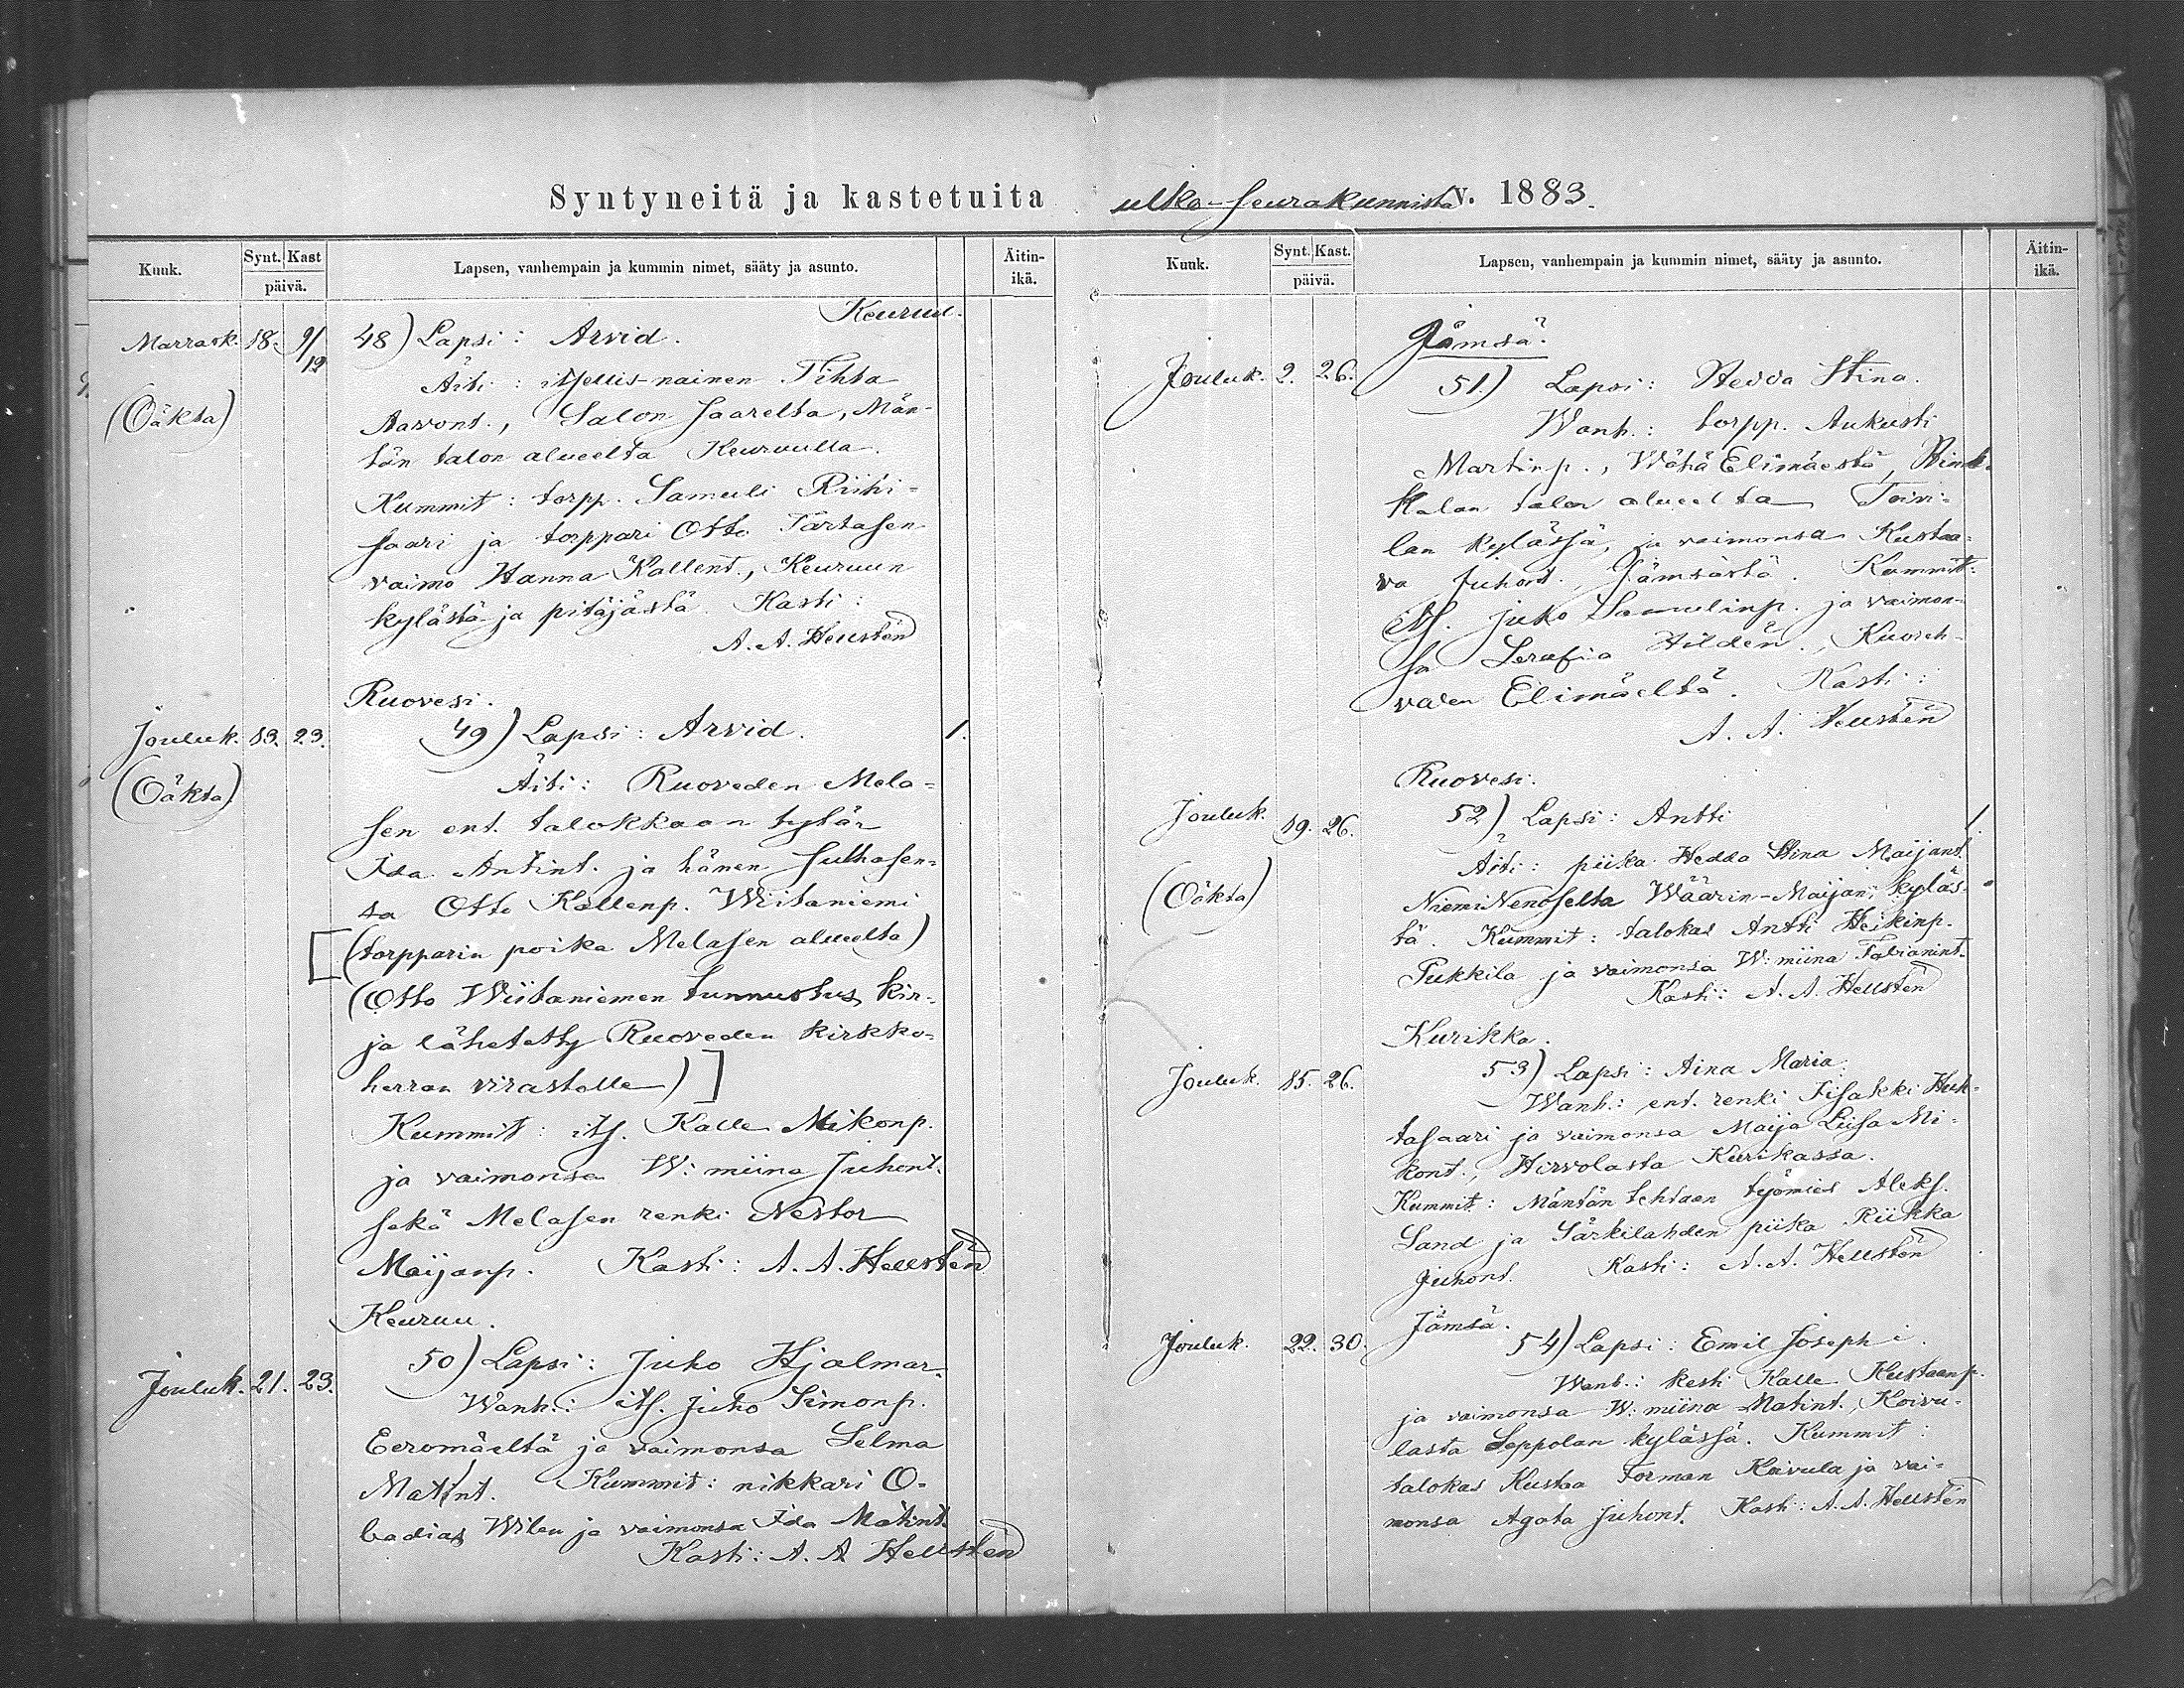 Syntyneitä ja kastetuita ulko-seurakunnista v. 1883.
Kuuk. Synt. Kast päivä. Lapsen, vanhempain ja kummin nimet, sääty ja asunto. Äitin-ikä.
Keuruu.
Marrask. 18. 9/12 48) Lapsi: Arvid.
(Oäkta) Äiti: itsellis-nainen Tihta
Aavont., Salon Saarelta, Män-
tän talon alueelta Keuruulla.
Kummit: torpp. Samuli Riihi-
saari ja torppari Otto Tartasen
vaimo Hanna Kallent., Keuruun
kylästä ja pitäjästä. Kasti:
A. A. Hellstén
Ruovesi.
Jouluk. 13. 23. 49) Lapsi: Arvid. 1.
(Oäkta) Äiti: Ruoveden Mela-
sen ent. talokkaan tytär
Ida Antint. ja hänen sulhasen-
sa Otto Kallenp. Wiitaniemi
[(torpparin poika Melasen alueelta)
(Otto Wiitaniemen tunnustus kir-
ja lähetetty Ruoveden kirkko-
herran virastolle)]
Kummit: its. Kalle Mikonp.
ja vaimonsa W:miina Juhont.
sekä Melasen renki Nestor
Maijanp. Kasti: A. A. Hellstén
Keuruu.
Jouluk. 21. 23. 50) Lapsi: Juho Hjalmar.
Wanh.: its. Juho Simonp.
Eeromäeltä ja vaimonsa Selma
Matint. Kummit: nikkari O-
badias Wilen ja vaimonsa Ida Matint.
Kasti: A. A. Hellstén
Kuuk. Synt. Kast. päivä. Lapsen, vanhempain ja kummin nimet, sääty ja asunto. Äitin-ikä.
Jämsä.
Jouluk. 2. 26. 51.) Lapsi: Hedda Stina.
Wanh.: torpp. Aukusti
Martinp., Wähä Elimäestä,
kalan talon alueelta Toivi-
lan kylässä, ja vaimonsa Kustaa-
va Juhont. Jämsästä. Kummit:
its. Juho Samulinp. ja vaimon-
sa Serafia Hildén, Kuoreh-
veden Elimäeltä. Kasti:
A. A. Hellstén
Ruovesi.
Jouluk. 19. 26. 52) Lapsi: Antti 1.
(Oäkta) Äiti: piika Hedda Stina Maijant.
Niemi Nenoselta Wäärin-Maijan kyläs-
tä. Kummit: talokas Antti Heikinp.
Pukkila ja vaimonsa W:miina Fabianint.
Kasti: A. A. Hellstén
Kurikka.
Jouluk. 15. 26. 53) Lapsi: Aina Maria.
Wanh.: ent. renki Iisakki Huh-
tasaari ja vaimonsa Maija Liisa Mi-
kont., Hirvolasta Kurikassa.
Kummit: Mäntän tehtaan työmies Aleks.
Sand ja Särkilahden piika Riikka
Juhont. Kasti: A. A. Hellstén
Jämsä.
Jouluk. 22. 30. 54) Lapsi: Emil Joseph
Wanh.: kesti Kalle Kustaanp.
ja vaimonsa W:miina Matint., Koivu-
lasta Seppolan kylässä. Kummit:
talokas Kustaa Forman Koivula ja vai-
monsa Agata Juhont. Kasti: A. A. Hellstén